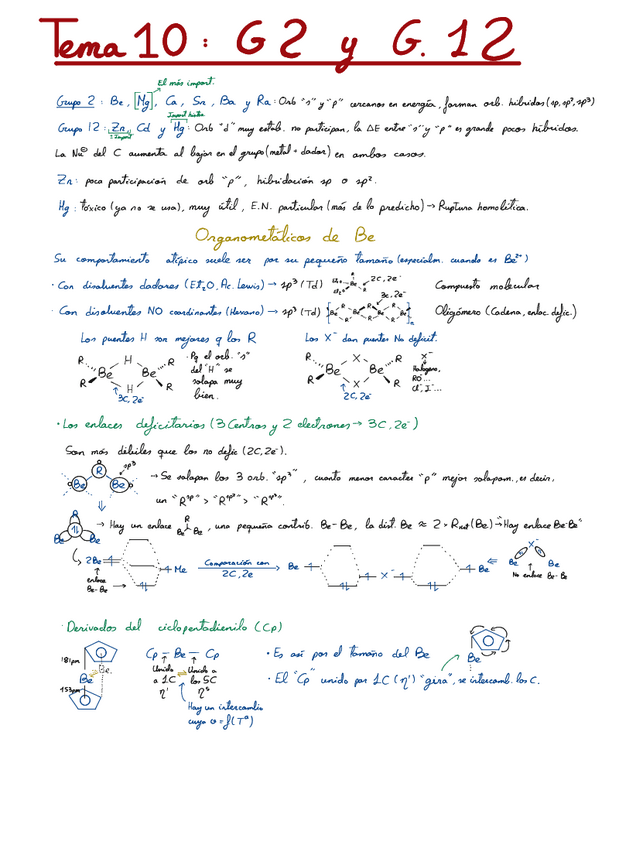 Tema 10: G2 y G.12
El más import.
Grupo 2: Be, Mg, Ca, Sr, Ba y Ra: Orb "s" y "p" cercanos en energía, forman orb. híbridos (sp, sp², sp³)
Import. hasta
Grupo 12: Zn, Cd y Hg: Orb "d" muy estab. no participan, la ΔE entre "s" y "p" es grande pocos híbridos.
Import
La Nu⊖ del C aumenta al bajar en el grupo (metal = dador) en ambos casos.
Zn: poca participación de orb "p", hibridación sp o sp².
Hg: tóxico (ya no se usa), muy útil, E.N. particular (más de lo predicho) → Ruptura homolítica.
Organometálicos de Be
Su comportamiento atípico suele ser por su pequeño tamaño (especialm. cuando es Be²⁺)
· Con disolventes dadores (Et₂O, Ac. Lewis) → sp³ (Td) 2C, 2e⁻ Compuesto molecular
3C, 2e⁻
· Con disolventes NO coordinantes (Hexano) → sp³ (Td) Oligómero (Cadena, enlac. defic.)
Los puentes H son mejores q los R
Los X⁻ dan puentes No deficit.
R H R
Be Be
R H R
3C, 2e⁻
· Pq el orb. "s"
del "H" se
solapa muy
bien.
R X R
Be Be
R X R
2C, 2e⁻
X⁻
Halógeno,
RO⁻...
Cl⁻, I⁻...
· Los enlaces deficitarios (3 Centros y 2 electrones → 3C, 2e⁻)
Son más débiles que los no defic (2C, 2e⁻).
sp³
R
Be Be
→ Se solapan los 3 orb. "sp³", cuanto menor caracter "p" mejor solapam., es decir,
un "R sp" > "R sp²" > "R sp³".
R
Be Be
→ Hay un enlace Be R Be, una pequeña contrib. Be-Be, la dist. Be ≈ 2 × R (Be) → Hay enlace Be-Be
2Be
enlace
Be-Be
Me
Comparación con
2C, 2e
Be X⁻ Be
X⁻
Be Be
No enlace Be-Be
· Derivados del ciclopentadienilo (Cp)
181pm
Be
Be
153pm
Cp - Be - Cp
Unido Unido a
a 1C los 5C
η¹ η⁵
Hay un intercambio
cuya v = f(Tª)
· Es así por el tamaño del Be
· El "Cp" unido por 1C (η¹) "gira", se intercamb. los C.
Be